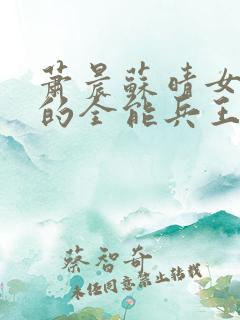 蕭晨蘇晴女
的全能兵王
蔡智奇
未经同意禁止转载